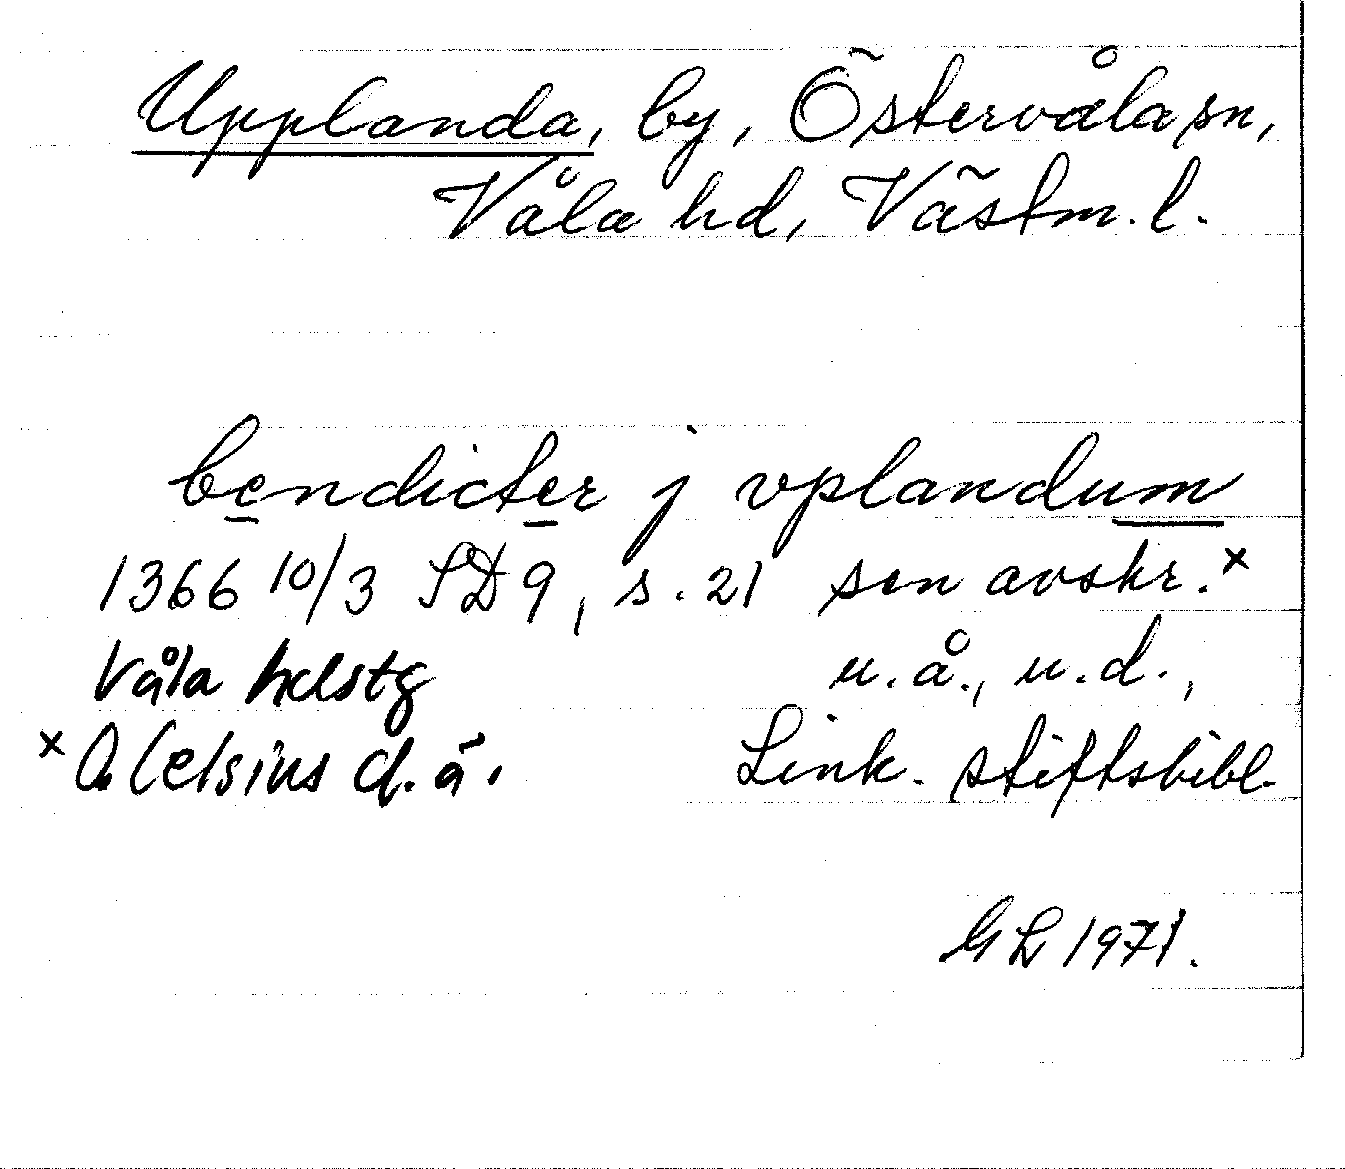 Upplanda, by, Östervåla sn,
Våla hd, Västm. l.
bendicter j vplandum
1366 10/3 SD 9, s. 21 sen avskr.x
Våla helstg u.å., u.d.,
x O Celsius d.ä. Link. stiftsbibl.
GL 1971.